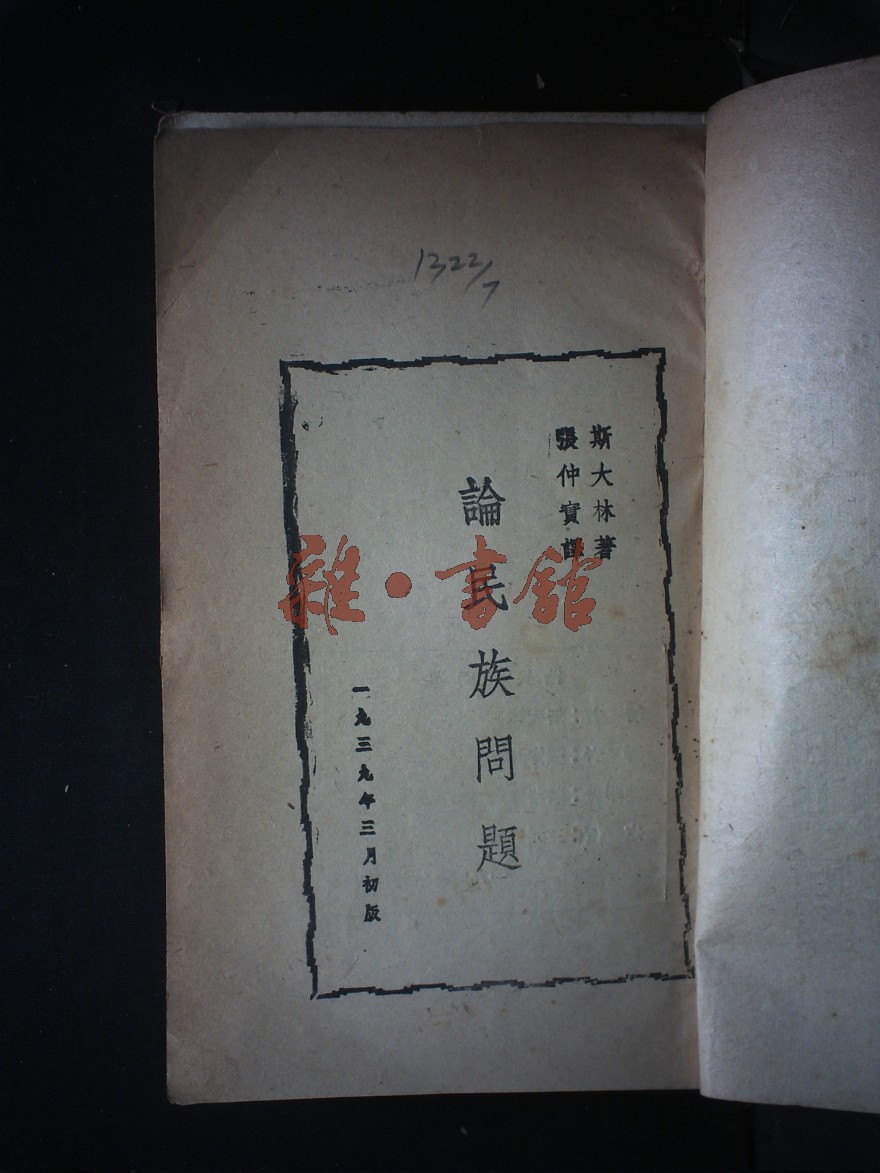 1322/7
斯大林著
張仲實譯
論民族問題
一九三九年三月初版
雜·書館